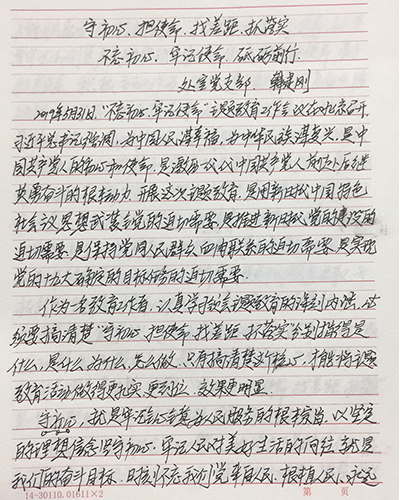 守初心、担使命、找差距、抓落实
不忘初心、牢记使命、砥砺前行
处室党支部 韩建刚
2019年5月31日，"不忘初心、牢记使命"主题教育工作会议在北京召开，
习近平总书记强调，为中国人民谋幸福，为中华民族谋复兴，是中
国共产党人的初心和使命，是激励一代代中国共产党人前赴后继
英勇奋斗的根本动力，开展这次主题教育，是用新时代中国特色
社会主义思想武装全党的迫切需要，是推进新时代党的建设的
迫切需要，是保持党同人民群众血肉联系的迫切需要，是实现
党的十九大确定的目标任务的迫切需要。
作为一名教育工作者，认真学习领会主题教育的深刻内涵，必
须要搞清楚"守初心、担使命、找差距、抓落实"分别指得是
什么，是什么，为什么，怎么做。只有搞清楚这核心，才能将主题
教育活动做得更扎实、更到位、效果更明显。
守初心，就是牢记全心全意为人民服务的根本宗旨，以坚定
的理想信念坚守初心，牢记人民对美好生活的向往就是
我们的奋斗目标，时刻不忘我们党来自人民、根植人民，永远
14-30110.01611×2
第 页